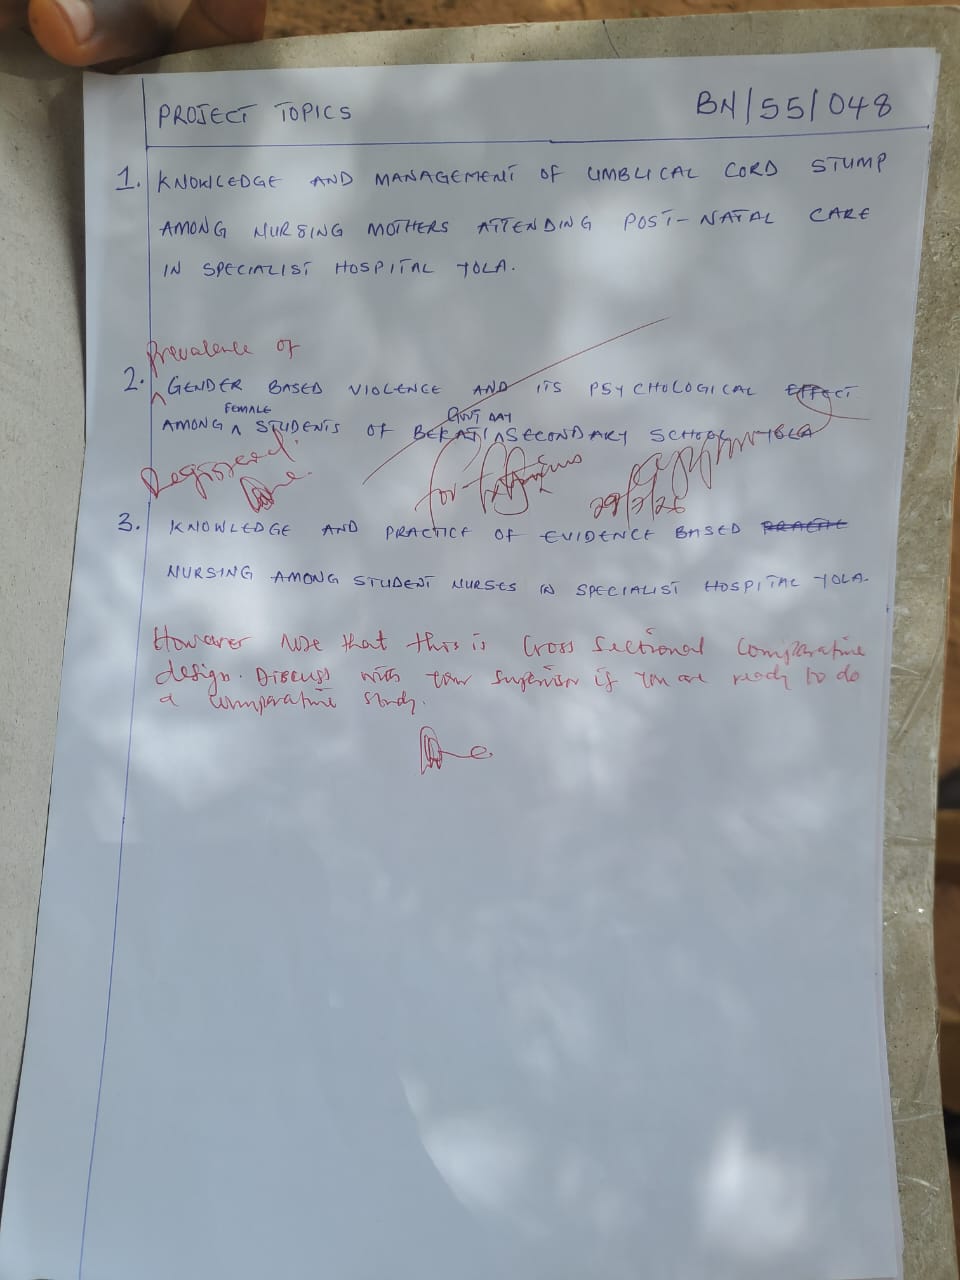 PROJECT TOPICS
BN/55/048
1. KNOWLEDGE AND MANAGEMENT OF UMBLICAL CORD STUMP
AMONG NURSING MOTHERS ATTENDING POST-NATAL CARE
IN SPECIALIST HOSPITAL YOLA.
Prevalence of
2. GENDER BASED VIOLENCE AND ITS PSYCHOLOGICAL EFFECT
FEMALE GOVT DAY
AMONG STUDENTS OF SECONDARY SCHOOL YOLA
for
3. KNOWLEDGE AND PRACTICE OF EVIDENCE BASED
NURSING AMONG STUDENT NURSES IN SPECIALIST HOSPITAL YOLA.
However note that this is Cross Sectional Comparative
design. Discuss with your supervisor if you are ready to do
a comparative study.